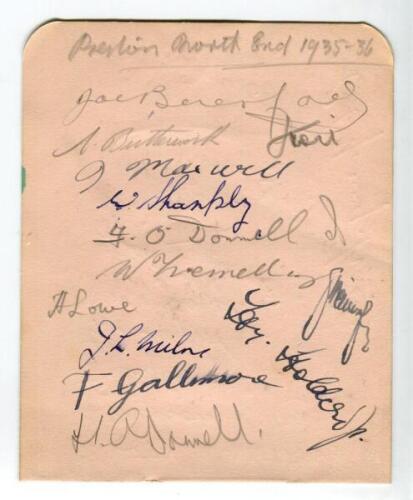 Preston North End 1935-36
Joe Beresford
A. Butterworth
J Maxwell
W Shankly
F. O'Donnell
W Tremelling
A Lowe
J. L. Milne
F Gallimore
H. O'Donnell.